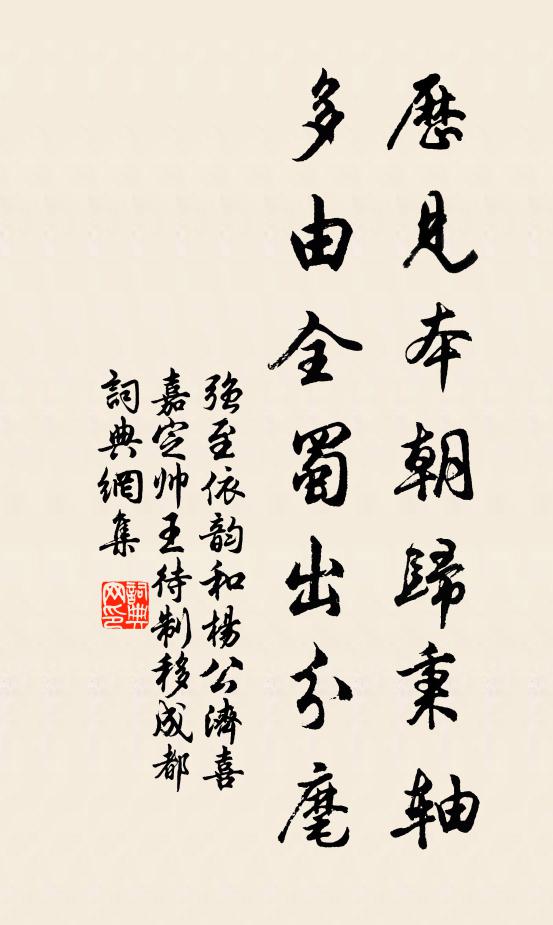 歷見本朝歸秉軸
多由全蜀出分麾
強至依韵和楊公濟喜
嘉定帅王待制移成都
詞典網集
詞典网印